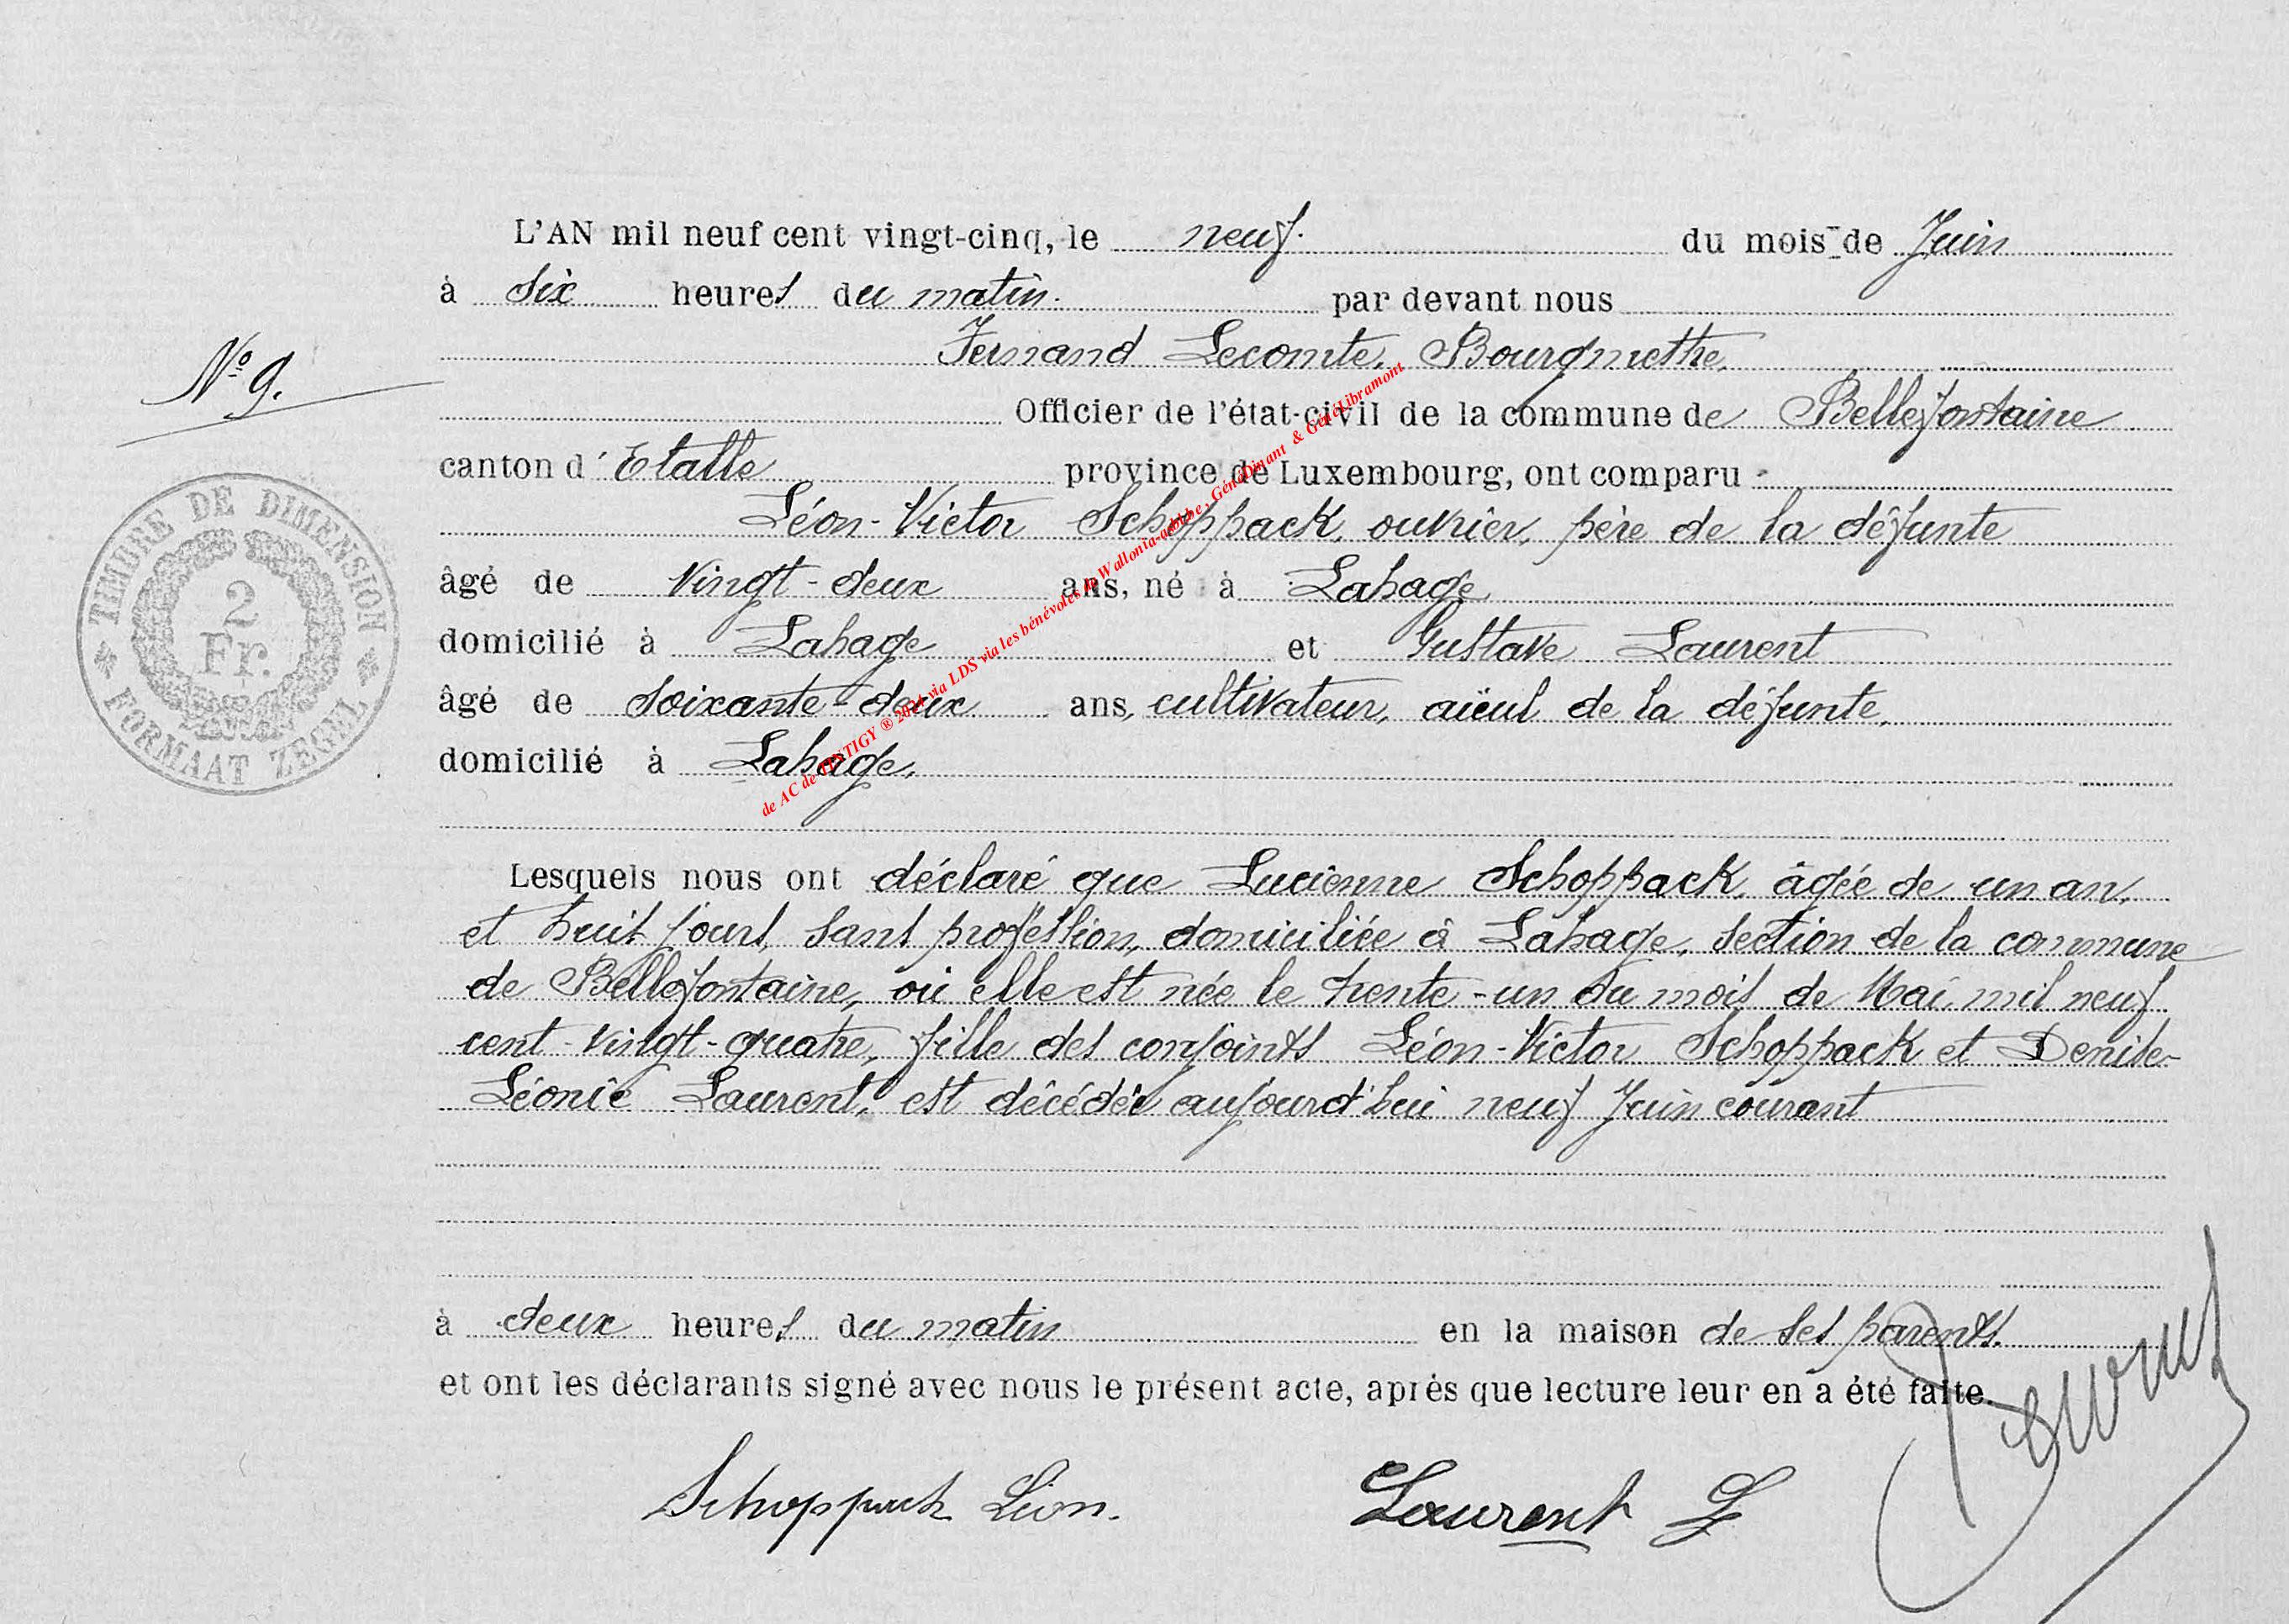 L'AN mil neuf cent vingt-cinq, le neuf. du mois de Juin
à six heures du matin. par devant nous
Fernand Lecomte, Bourgmestre,
N° 9.
Officier de l'état-civil de la commune de Bellefontaine
canton d'Etalle province de Luxembourg, ont comparu
Léon-Victor Schoppack, ouvrier, père de la défunte
âgé de vingt-deux ans, né à Lahage
domicilié à Lahage et Gustave Laurent
âgé de soixante-deux ans, cultivateur, aïeul de la défunte,
domicilié à Lahage,
TIMBRE DE DIMENSION
2
Fr.
FORMAAT ZEGEL
de AC de TINTIGY ® 2024 via LDS via les bénévoles de Wallonia-asbl.be, GénéDinant & GénéLibramont
Lesquels nous ont déclaré que Lucienne Schoppack, âgée de un an,
et huit jours, sans profession, domiciliée à Lahage, section de la commune
de Bellefontaine, où elle est née le trente-un du mois de Mai, mil neuf
cent-vingt-quatre, fille des conjoints Léon-Victor Schoppack et Denise-
Léonie Laurent, est décédée aujourd'hui neuf Juin courant
à deux heures du matin en la maison de ses parents.
et ont les déclarants signé avec nous le présent acte, après que lecture leur en a été faite.
Schoppach Léon. Laurent G